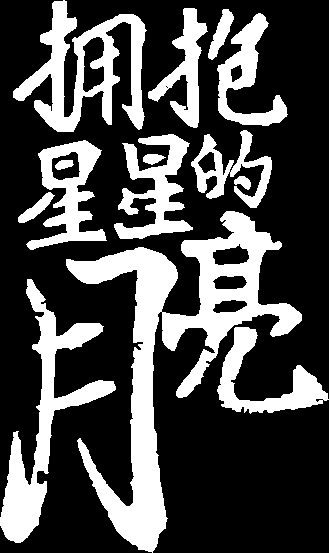 拥抱
星星的
月亮